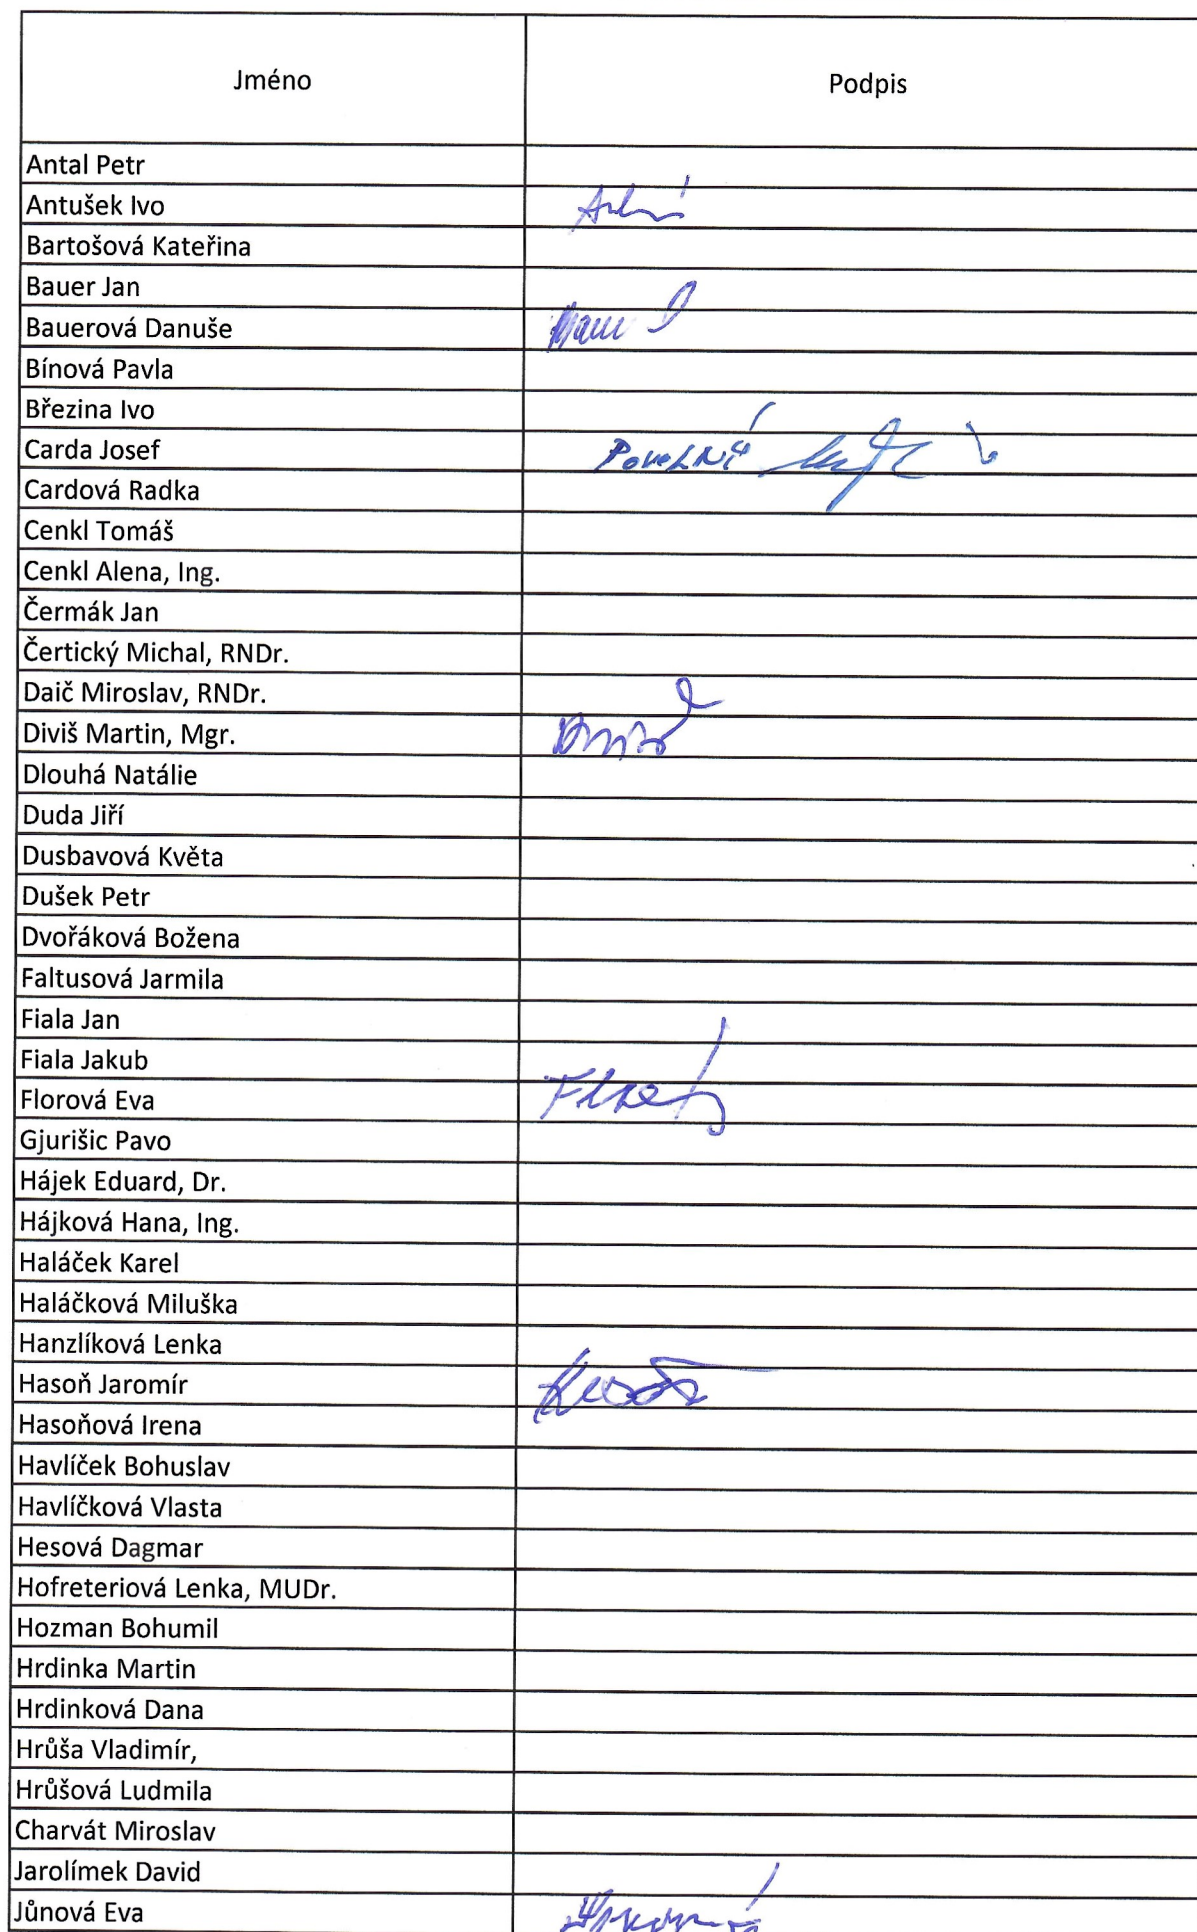 Jméno Podpis
Antal Petr
Antušek Ivo
Bartošová Kateřina
Bauer Jan
Bauerová Danuše
Bínová Pavla
Březina Ivo
Carda Josef
Cardová Radka
Cenkl Tomáš
Cenkl Alena, Ing.
Čermák Jan
Čertický Michal, RNDr.
Daič Miroslav, RNDr.
Diviš Martin, Mgr.
Dlouhá Natálie
Duda Jiří
Dusbavová Květa
Dušek Petr
Dvořáková Božena
Faltusová Jarmila
Fiala Jan
Fiala Jakub
Florová Eva
Gjurišic Pavo
Hájek Eduard, Dr.
Hájková Hana, Ing.
Haláček Karel
Haláčková Miluška
Hanzlíková Lenka
Hasoň Jaromír
Hasoňová Irena
Havlíček Bohuslav
Havlíčková Vlasta
Hesová Dagmar
Hofreteriová Lenka, MUDr.
Hozman Bohumil
Hrdinka Martin
Hrdinková Dana
Hrůša Vladimír,
Hrůšová Ludmila
Charvát Miroslav
Jarolímek David
Jůnová Eva